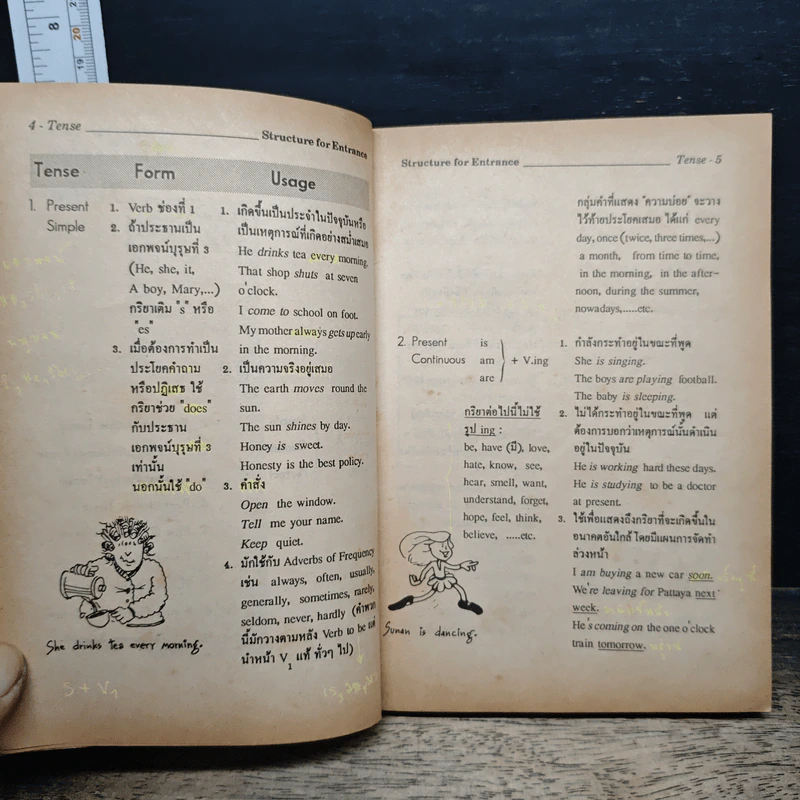 8
20
19
4 - Tense
Structure for Entrance
Tense
Form
Usage
1. Present
Simple
1. Verb ช่องที่ 1
2. ถ้าประธานเป็น
เอกพจน์บุรุษที่ 3
(He, she, it,
A boy, Mary,...)
กริยาเติม "s" หรือ
"es"
3. เมื่อต้องการทำเป็น
ประโยคคำถาม
หรือปฏิเสธ ใช้
กริยาช่วย "does"
กับประธาน
เอกพจน์บุรุษที่ 3
เท่านั้น
นอกนั้นใช้ "do"
1. เกิดขึ้นเป็นประจำในปัจจุบันหรือ
เป็นเหตุการณ์ที่เกิดอย่างสม่ำเสมอ
He drinks tea every morning.
That shop shuts at seven
o'clock.
I come to school on foot.
My mother always gets up early
in the morning.
2. เป็นความจริงอยู่เสมอ
The earth moves round the
sun.
The sun shines by day.
Honey is sweet.
Honesty is the best policy.
3. คำสั่ง
Open the window.
Tell me your name.
Keep quiet.
4. มักใช้กับ Adverbs of Frequency
เช่น always, often, usually,
generally, sometimes, rarely,
seldom, never, hardly (คำพวก
นี้มักวางตามหลัง Verb to be แต่
นำหน้า V1 แท้ ทั่วๆ ไป)
She drinks tea every morning.
S + V1
Structure for Entrance
Tense - 5
กลุ่มคำที่แสดง "ความบ่อย" จะวาง
ไว้ท้ายประโยคเสมอ ได้แก่ every
day, once (twice, three times,...)
a month, from time to time,
in the morning, in the after-
noon, during the summer,
nowadays,.....etc.
2. Present
Continuous
is
am
are
+ V.ing
กริยาต่อไปนี้ไม่ใช้
รูป ing :
be, have (มี), love,
hate, know, see,
hear, smell, want,
understand, forget,
hope, feel, think,
believe, .....etc.
1. กำลังกระทำอยู่ในขณะที่พูด
She is singing.
The boys are playing football.
The baby is sleeping.
2. ไม่ได้กระทำอยู่ในขณะที่พูด แต่
ต้องการบอกว่าเหตุการณ์นั้นดำเนิน
อยู่ในปัจจุบัน
He is working hard these days.
He is studying to be a doctor
at present.
3. ใช้เพื่อแสดงถึงกริยาที่จะเกิดขึ้นใน
อนาคตอันใกล้ โดยมีแผนการจัดทำ
ล่วงหน้า
I am buying a new car soon.
We're leaving for Pattaya next
week.
He's coming on the one o'clock
train tomorrow.
Sunan is dancing.